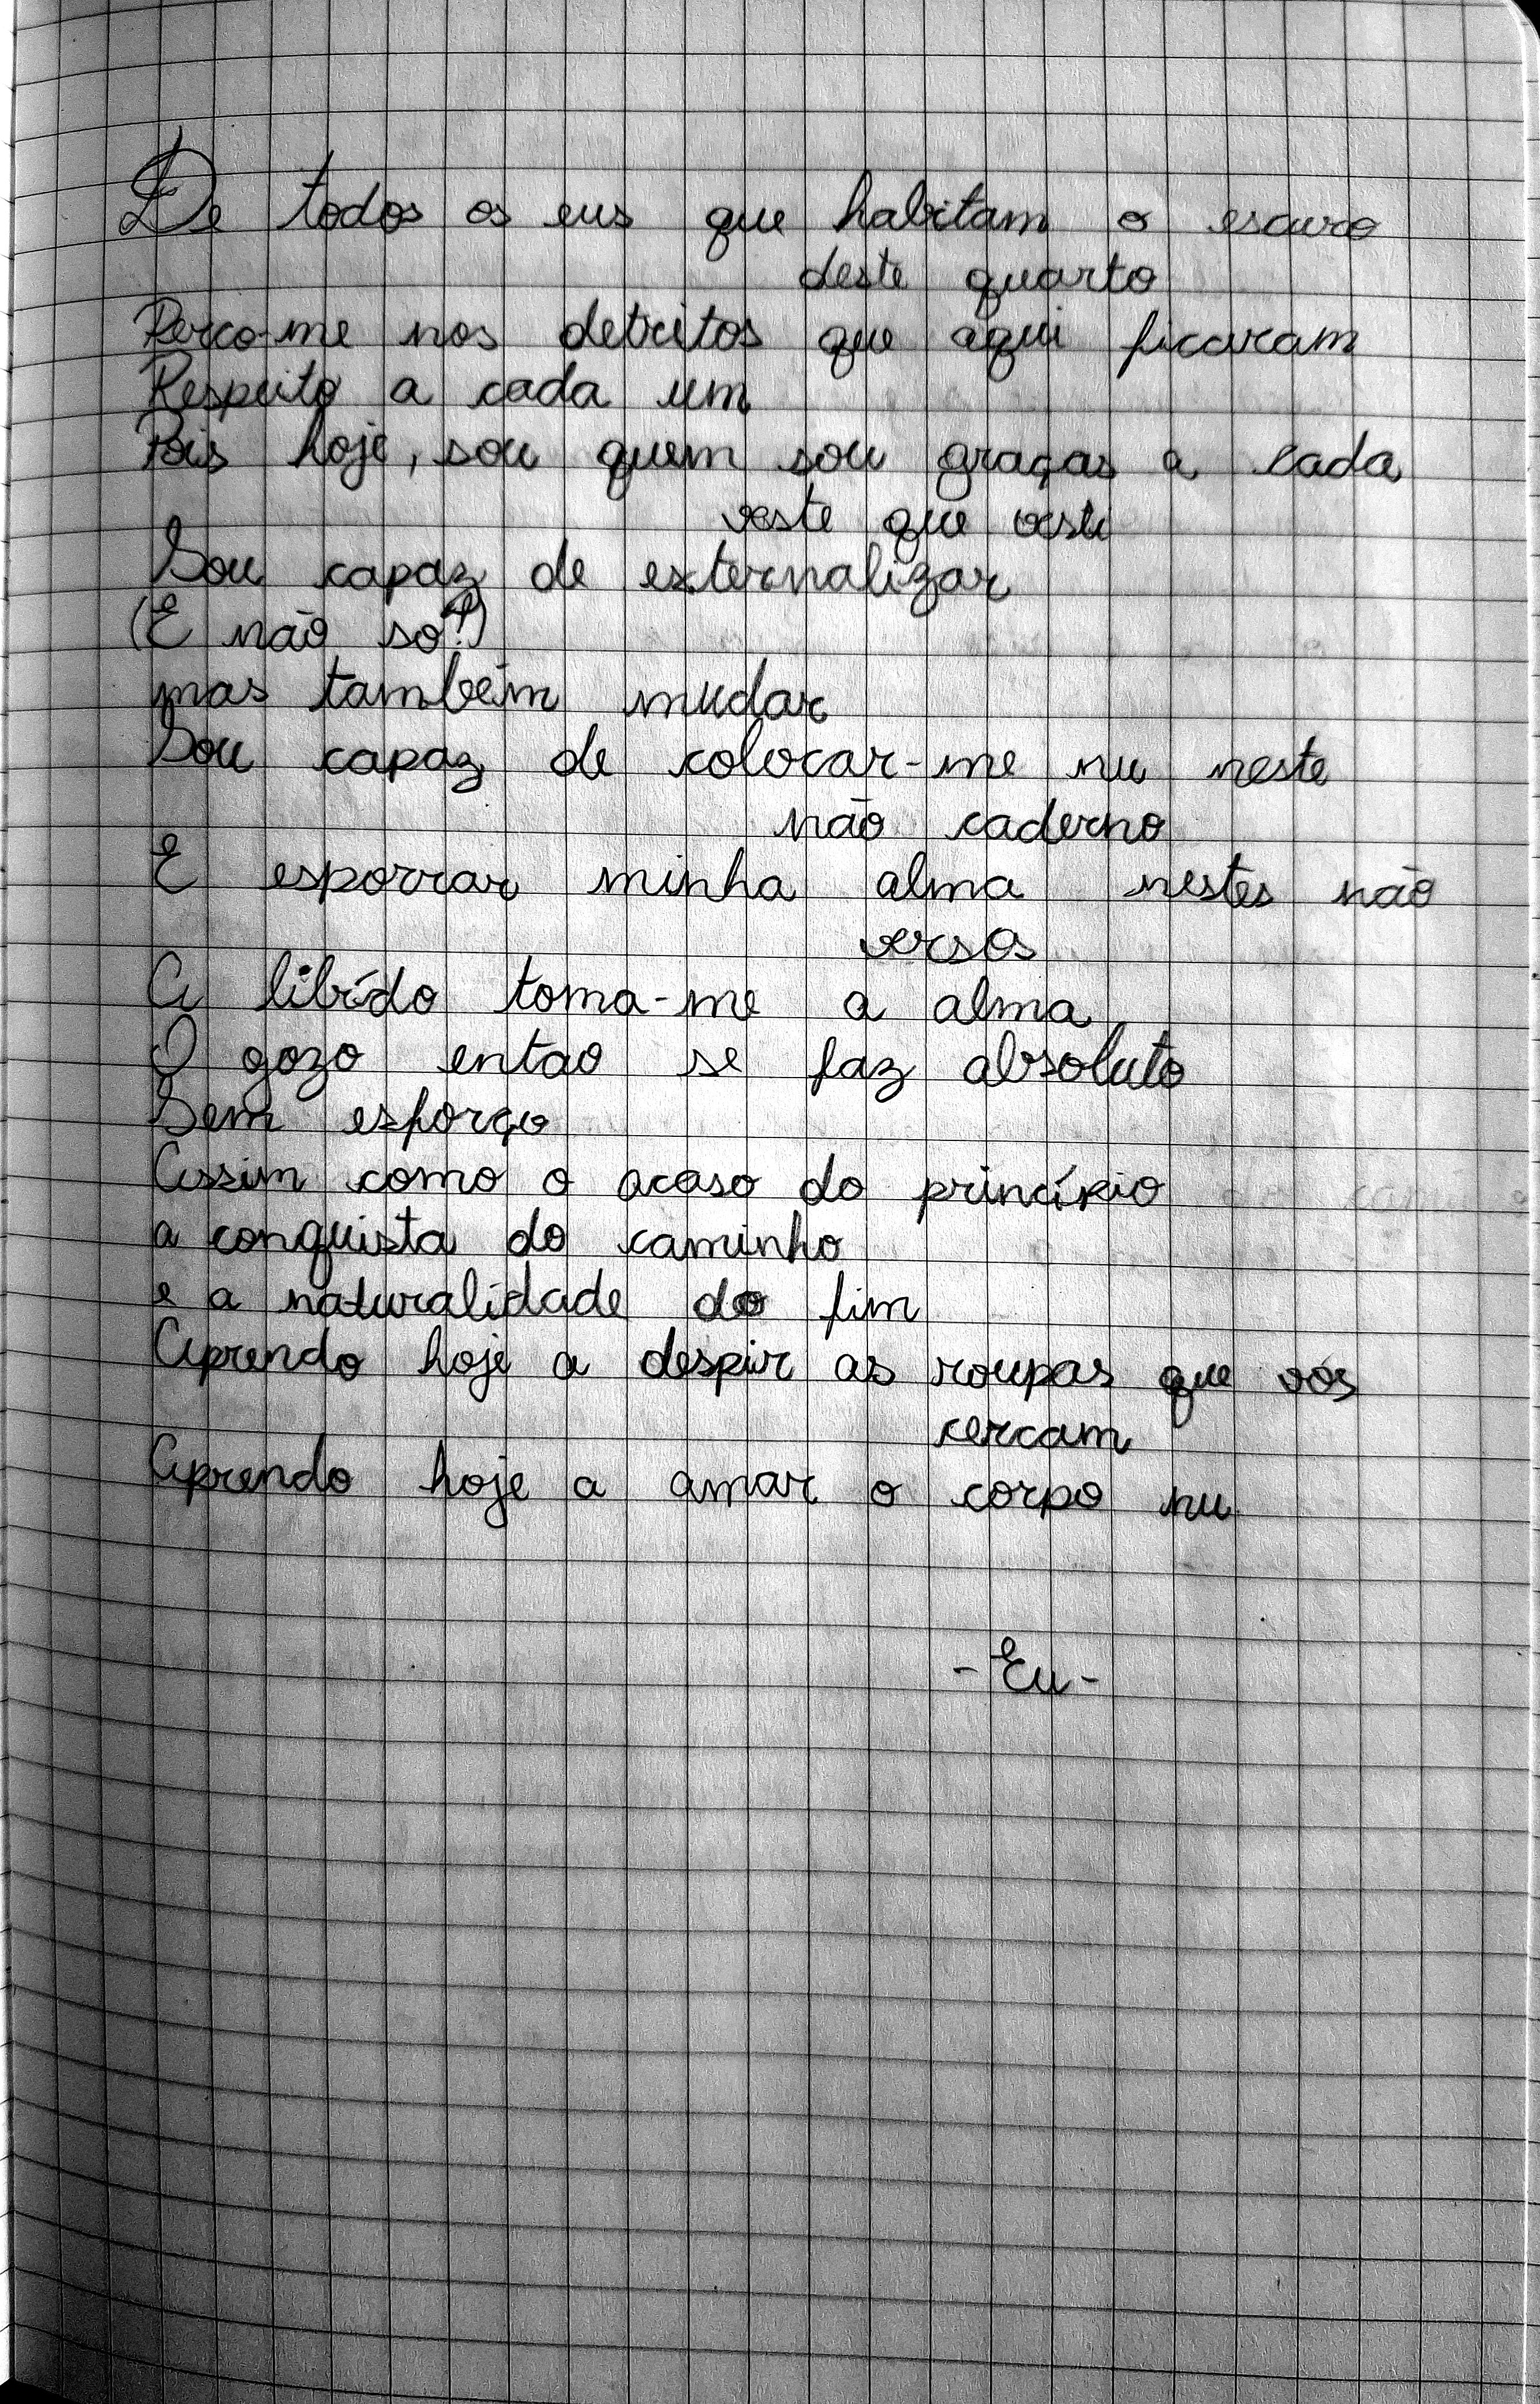 De todos os eus que habitam o escuro
deste quarto
Perco-me nos detritos que aqui ficaram
Respeito a cada um
Pois hoje, sou quem sou graças a cada
veste que vesti
Sou capaz de externalizar
(E não só?)
mas também mudar
Sou capaz de colocar-me nu neste
não caderno
E esporrar minha alma nestes não
versos
A libído toma-me a alma
O gozo então se faz absoluto
Sem esforço
Assim como o acaso do princípio
a conquista do caminho
e a naturalidade do fim
Aprendo hoje a despir as roupas que vós
cercam
Aprendo hoje a amar o corpo nu
- Eu -